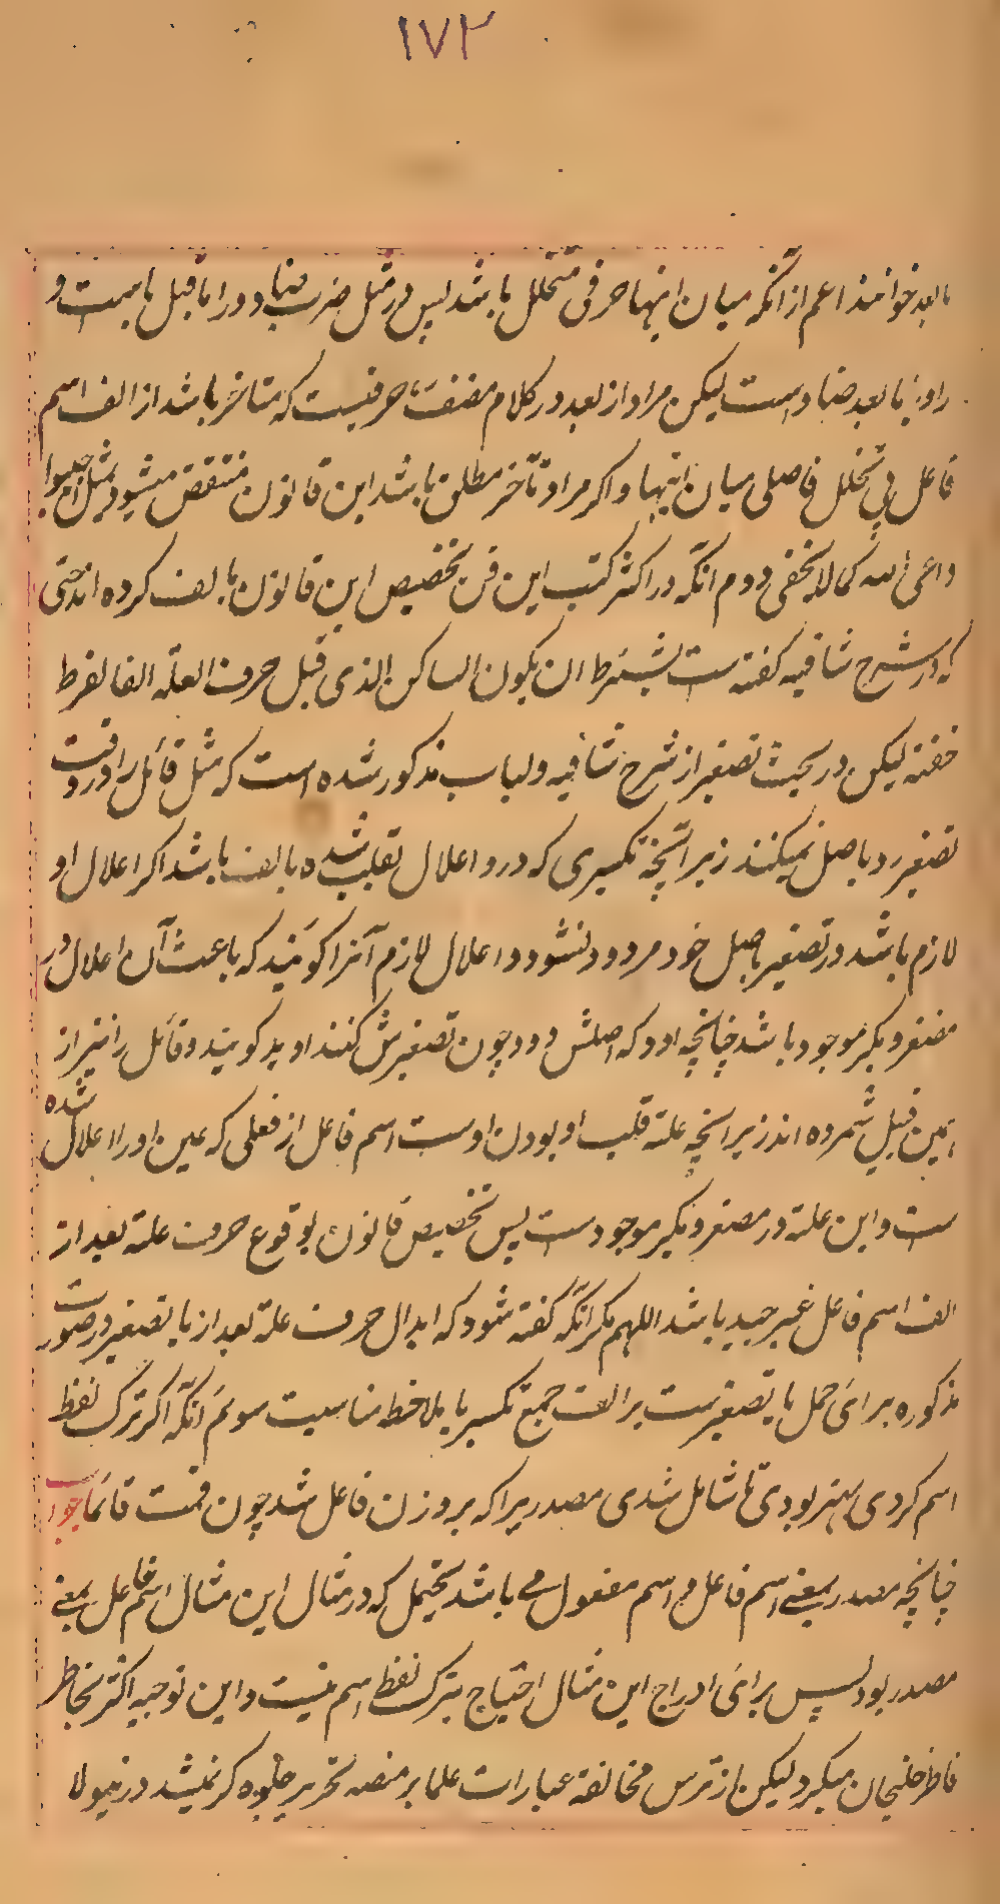 ۱۷۲
مابعد خوانند اعم از آنکه میان اینها حرفی متخلل باشد پس در مثل ضرب ضاد و را ماقبل با ست و
را و با مابعد ضاد ست لیکن مراد از بعد در کلام مصنف حرفیست که متاخر باشد از الف اسم
فاعل بی تخلل فاصلی میان اینها و اکر مراد تاخر مطلق باشد این قانون منتقض میشود بمثل اجیبوا
داعی الله کما لا یخفی دوم انکه در اکثر کتب این فن تخصیص این قانون بالف کرده اند حتی
که در شرح شافیه کفته ست یشترط ان یکون الساکن الذی قبل حرف العلة الفا لفرط
خفته لیکن در بحث تصغیر از شرح شافیه و لباب مذکور شده است که مثل قائل را در وقت
تصغیر رد باصل نمیکنند زیرا نچه تکسیری که درو اعلال بقلب شده بالف باشد اکر اعلال او
لازم باشد در تصغیر باصل خود مردود نشود و اعلال لازم آنرا کویند که باعث آن اعلال در
مصغر و مکبر موجود باشد چنانچه ادد که اصلش ودد چون تصغیرش کنند ادید کویند و قائل را نیز از
همین قبیل شمرده اند زیرا نچه علة قلب او بودن اوست اسم فاعل از فعلی که عین او را اعلال شده
ست و این علة در مصغر و مکبر موجودست پس تخصیص قانون بوقوع حرف علة بعد از
الف اسم فاعل غیر جید باشد اللهم مکر انکه کفته شود که ابدال حرف علة بعد از یا تصغیر در صورت
مذکوره برای حمل یا تصغیرست بر الف جمع تکسیر یا بملاحظه مناسبت سوئم انکه اکر ترک لفظ
اسم کردی بهتر بودی تا شامل شدی مصدریرا که بروزن فاعل شد چون قمت قائما جواب
چنانچه مصدر بمعنی اسم فاعل و اسم مفعول می باشد یحتمل که در مثال این مثال اسم فاعل بمعنی
مصدر بود پس برای ادراج این مثال احتیاج بترک لفظ اسم نیست و این توجیه اکثر بخاطر
فاطر خلیجان میکرد لیکن از ترس مخالفة عبارات علما بر منصه تحریر جلوه کر نمیشد درنیولا